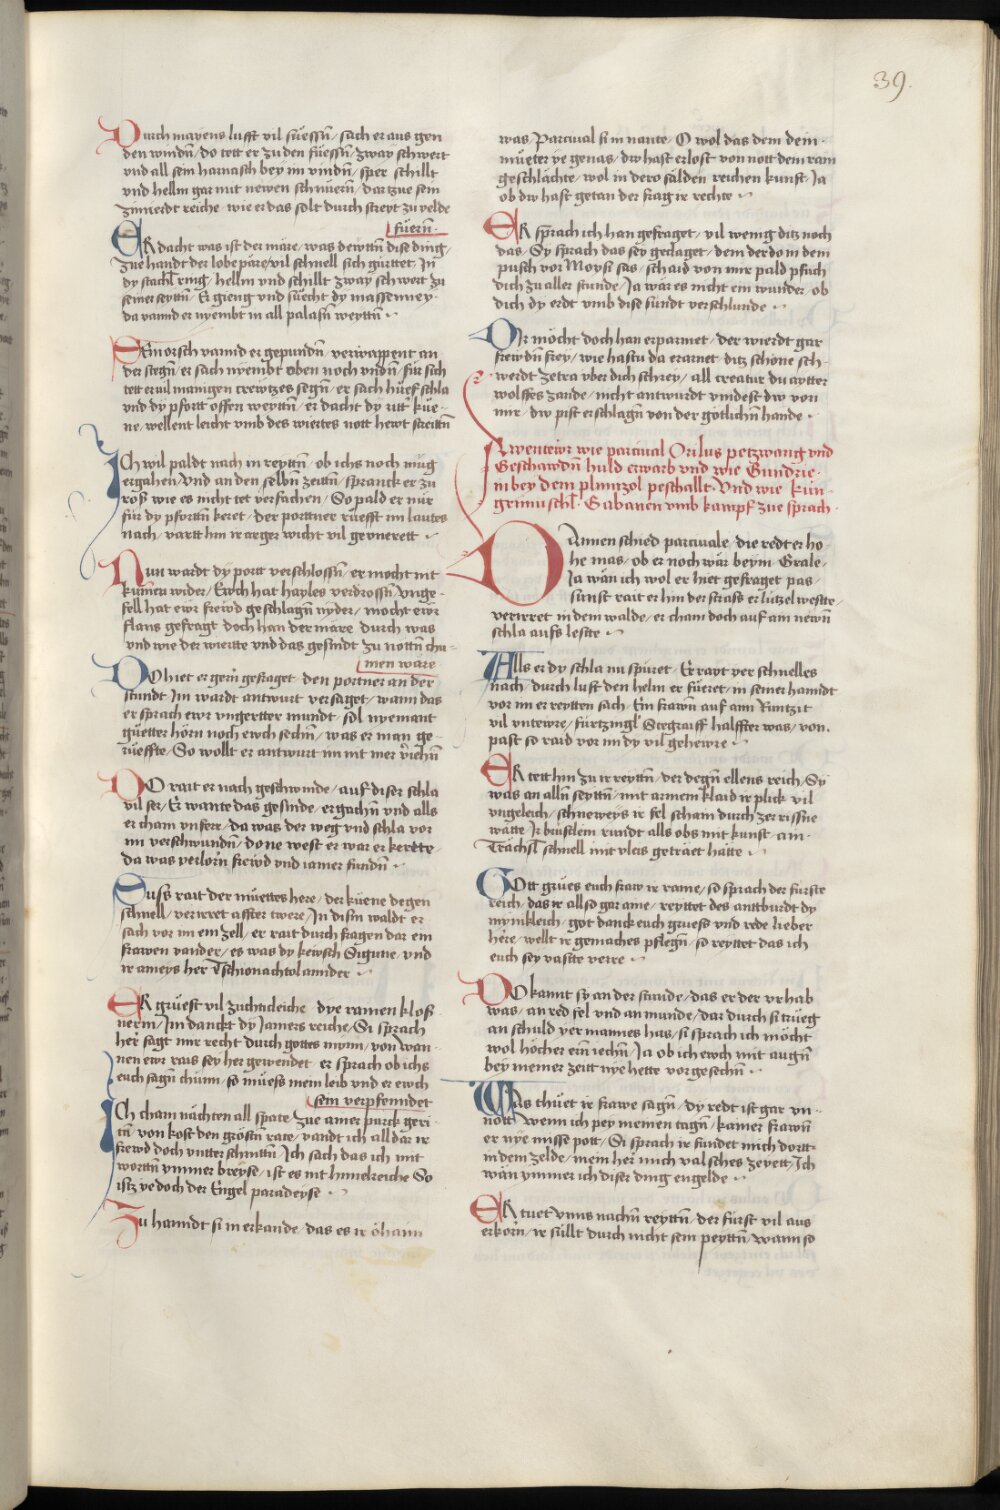 39.
Durch mayens lufft vil suessñ / sach er aus gen
den windñ / do tett er zu den fuessñ / zway schwert
vnd all sein harnasch bey im vindñ / sper schillt
vnd hellm gar mit newen schnüerñ / dartzue sein
zimierdt reiche wie er das solt durch streyt zu velde
fuerñ ·
ER dacht was ist der märe / was dewttñ dise ding /
zue handt der lobepäre / vil schnell sich gürttet / In
dy stachl ring / hellm vnd schillt zway schwert zu
seiner seyttñ / Er gieng vnd suecht dy massenney ·
da vannd er nyembt in all palasñ weyttñ ·
Sein orsch vannd er gepundñ / verwappent an
der stegñ / er sach nyembt oben noch vndñ / für sich
tett er vil manigen crewtzes segñ / er sach huef schla
vnd dy pfortt offen weyttñ / er dacht dy ritt küe
ne / wellent leicht vmb des wiertes nott hewt streittñ
Ich wil paldt nach in reyttñ / ob ichs noch müg
ergahen / vnd an den selbñ zeittñ / spranck er zu
ross wie es nicht tet versachen / So pald er nür
für dy pforttñ keret / der porttner rüefft im lautes
nach / vartt hin ir arger wicht vil gevnerett ·
Nun wardt dy portt verschlossñ / er mocht nit
kumen wider / Ewch hat hayles verdrossñ / vnge
fell hat ewr frewd geschlagñ nyder / mocht ewr
flans gefragt doch han der märe durch was
vnd wie der wiertte vnd das gesindt zu nottñ chu
men wäre
DO hiet er gerñ gefraget den portner an der
stundt Im wardt antwurt versaget / wann das
er sprach ewr vngertter mundt / sol nyemant
güetter hörñ noch ewch sechñ / was er man ge
rüeffte / So wollt er antwurt im nit mer vїehñ
DO rait er nach geschwinde / auf diser schla
vil ser / Er wante das gesinde / ergachñ vnd alls
er cham vnfere / da was der weg vnd schla vor
im verschwundñ / done west er war er kertte
da was verlorñ frewd vnd iamer fundñ ·
Suss rait der müettes here / der küene degen
schnell / verirret affter twere / In disñ waldt er
sach vor im ein zell / er rait durch fragen dar ein
frawen vander / es was dy kewsch Sigune / vnd
ir ameys her Tschionachtolannder ·
ER grüest vil zuchticleiche dye ramen klos
nerin / Im danckt dy Jamers reiche / Si sprach
her sagt mir recht durch gottes mynn / von wan
nen ewr rais sey her gewendet er sprach ob ichs
euch sagñ chünn / so müess mein leib vnd er ewch
sein verpfenndet
Ich cham nächten all spate zue ainer purck geri
tñ / von kost den gröstñ rate / vandt ich all dar ir
frewd doch vntter schnittñ / Ich sach das ich mit
worttñ ymmer breyse / ist es nit himelreiche So
istz ye doch der Engel paradeyse ·
Zu hanndt si in erkande / das es ir öhaim
was / Parcival si in nante / O wol das dem dein
müeter ye genas / dw hast erlost von nott dem ram
geschlächte / wol in dero sälden reichen kunst / Ja
ob dw hast getan der frag ir rechte ·
ER sprach ich han gefraget / vil wenig ditz noch
das / Sy sprach das sey geclaget / dem der do in dem
pusch vor Moysi sas / schaid von mir pald pfuch
dich zu aller stunde / Ja wär es nicht ein wunder / ob
dich dy erdt vmb dise sündt verschlunde ·
DIr möcht doch han erparmet / der wierdt gar
frewdñ frey / wie hastu da erarnet ditz schöne sch
werdt zetra vber dich schrey / all creatur du aytter
wolffes zande / nicht antwurdt vindest dw von
mir / dw pist erschlagñ von der götlichñ hande ·
Awentewr wie parcival Orilus petzwang vnd
Geschawdñ huld erwarb vnd wie Gundrie
in bey dem plimizol peschallt · Vnd wie kün
grimuschl Gabanen vmb kampf zue sprach ·
DAnnen schied parcivale / die redt er ho
he mas / ob er noch wär beym Grale /
Ja wän ich wol er hiet gefraget pas
sunst rait er hin der strass er lützel westte /
verirret in dem walde / er cham doch auf ain newñ
schla aufs lestte ·
Alls er dy schla nu spüret / Er rayt per schnelles
nach / durch lust den helm er füeret / in seiner hanndt
vor im er reytten sach / Ein frawñ auf aim Runtzit
vil vntewre / fürtzingl Stegraiff halffter was / von
past so raid vor im dy vil gehewre ·
ER tett hin zu ir reyttñ / der degñ ellens reich / Sy
was an allñ seyttñ / mit armem klaid ir plick vil
vngleich / schneweys ir fel scham durch zerrissne
watte / Ir brüstlein rundt alls obs mit kunst ain
Trächsl schnell mit vleis getraet hätte ·
Gott grües euch fraw ir rame / so sprach der fürste
reich / das ir allso gar ame / reyttet des anttburdt dy
mynikleich / got danck euch gruess vnd rede lieber
here / wellt ir gemaches pflegñ / so reyttet das ich
euch sey vastte verre ·
DO kannt sy an der stunde / das er der vrhab
was / an red fel vnd an munde / dar durch si trüeg
an schuld yer mannes hass / si sprach ich möcht
wol höcher ein iechñ / Ja ob ich ewch mit augñ
bey meiner zeitt nye hette vor gesechñ ·
Was thüet ir frawe sagñ / dy redt ist gar vn
nott / wenn ich pey meinen tagñ / kainer frawñ
er nye misse pott / Si sprach ir fundet mich dortt
in dem zelde / mein her mich valsches zeyett / Ich
wän ymmer ich diser ding engelde ·
ER tuet vnns nachñ reyttñ / der fürst vil aus
erkorñ / ir süllt durch nicht sein peyttñ / wann so